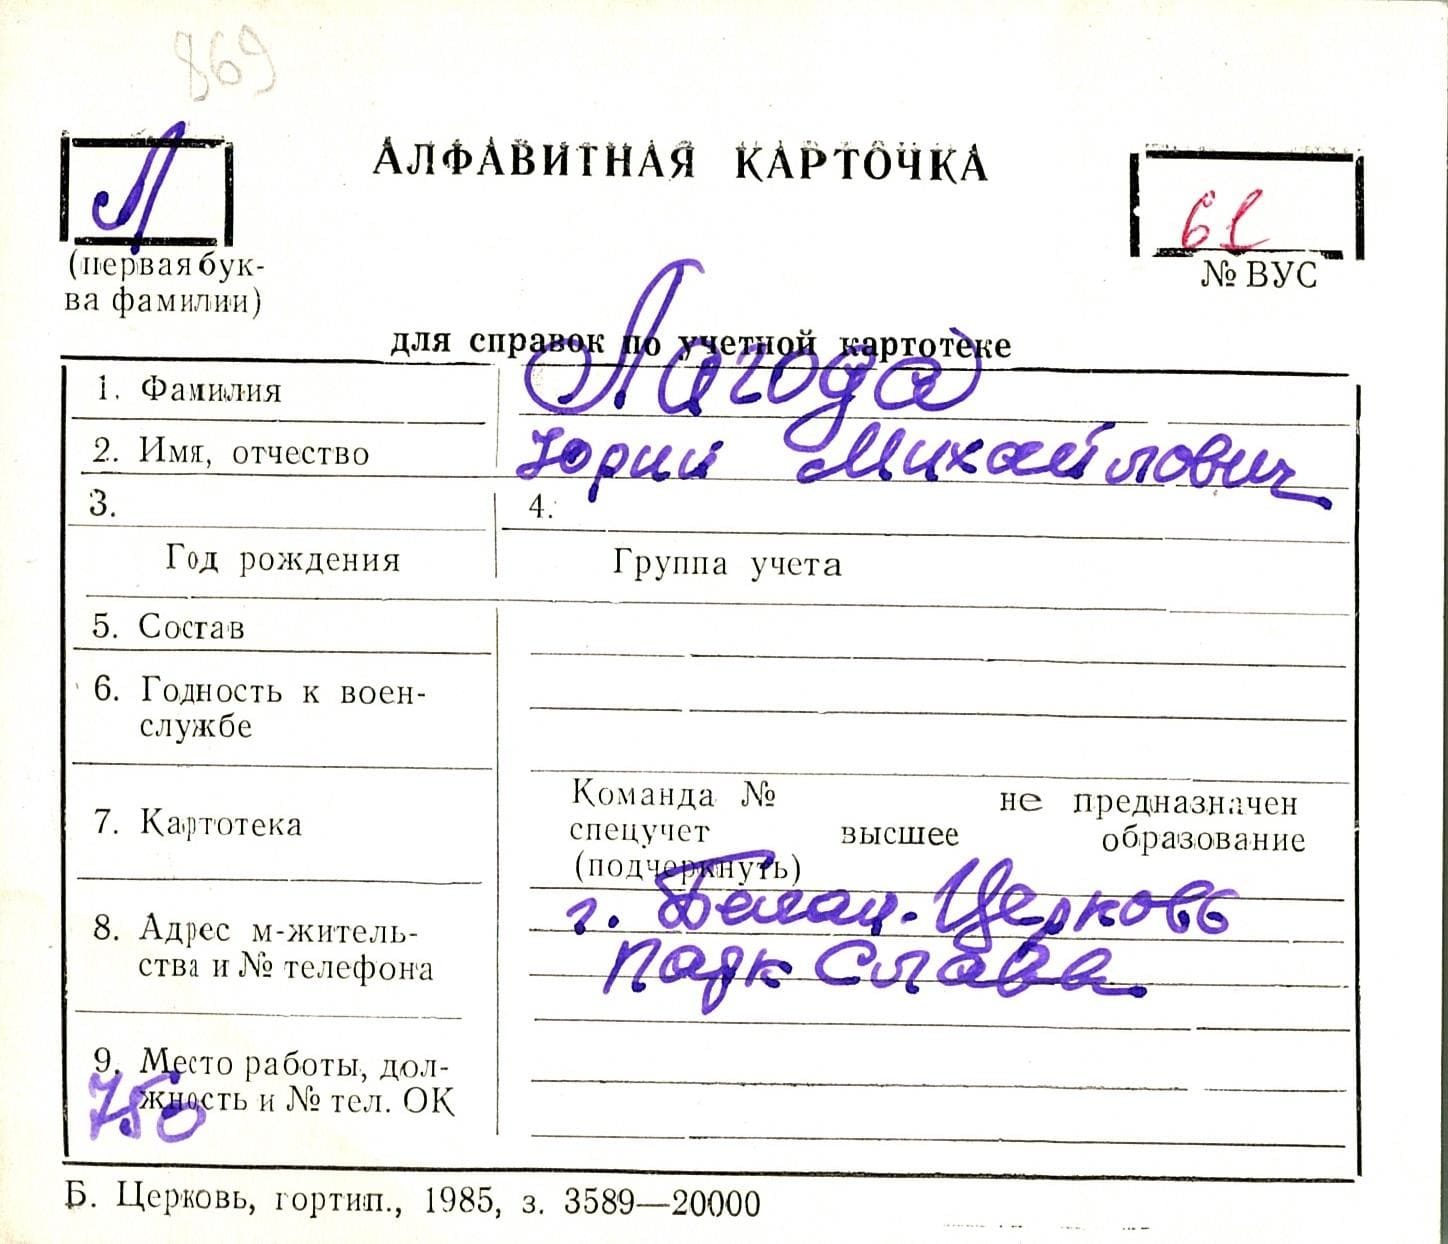 869
Л
АЛФАВИТНАЯ КАРТОЧКА
61
(первая бук-
ва фамилии)
№ ВУС
для справок по учетной картотеке
1. Фамилия Лагода
2. Имя, отчество Юрий Михайлович
3. 4.
Год рождения Группа учета
5. Состав
6. Годность к воен-
службе
7. Картотека
Команда № не предназначен
спецучет высшее образование
(подчеркнуть)
8. Адрес м-житель-
ства и № телефона
г. Белая-Церковь
парк Слава
9. Место работы, дол-
жность и № тел. ОК
750
Б. Церковь, гортип., 1985, з. 3589—20000